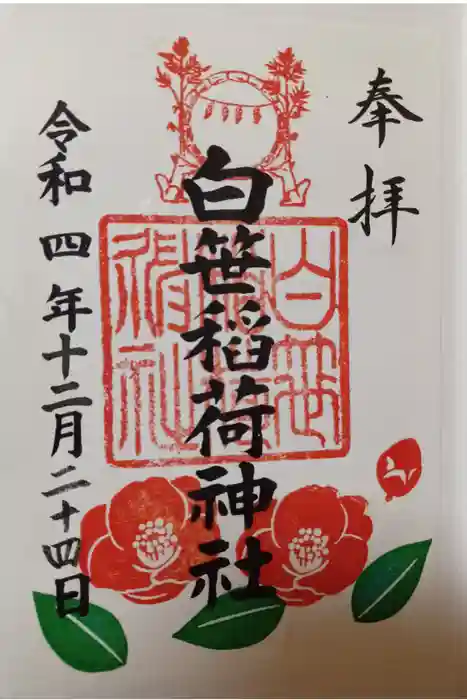 奉拝
白笹稲荷神社
白笹稲荷神社
令和四年十二月二十四日